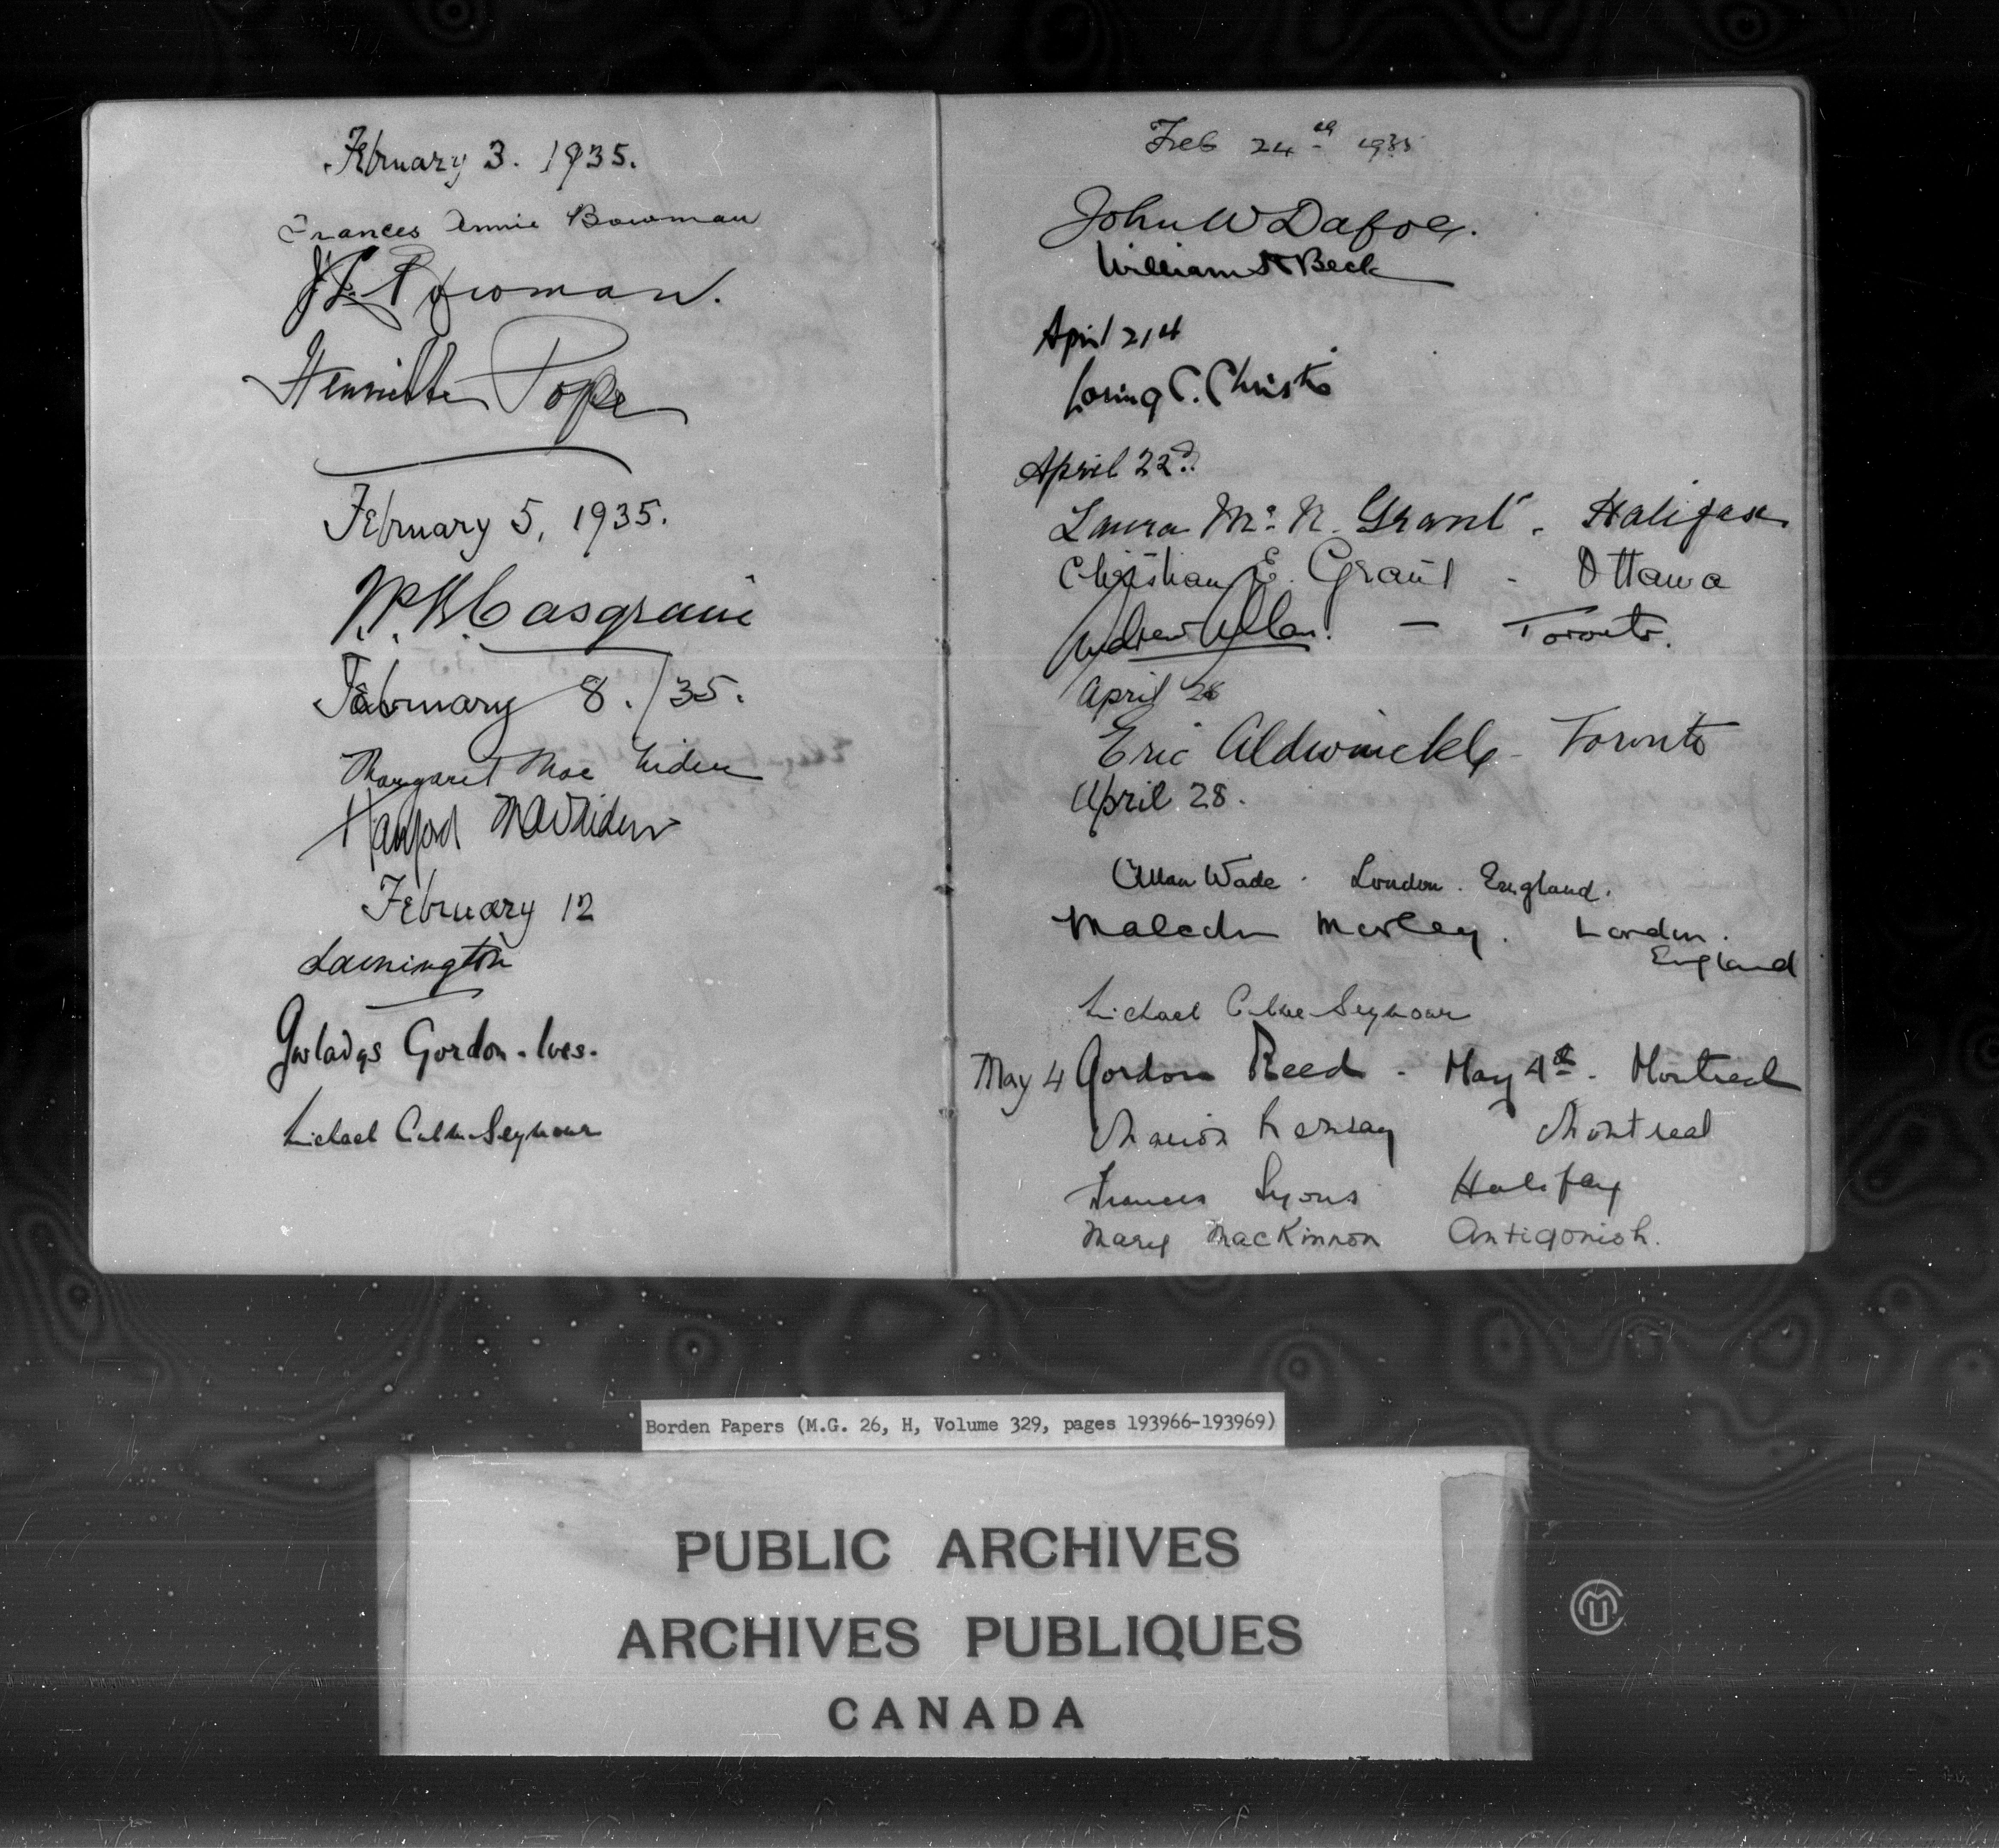 February 3. 1935.
Frances Annie Bowman
Bowman.
Henriette Pope
February 5, 1935.
Casgrain
February 8./35.
Margaret Mac
February 12
Lamington
Gwladys Gordon-Ives.
Michael Culme-Seymour
Feb 24th 1935
John W Dafoe.
William Beck
April 21st
Loring C. Christie
April 22nd
Laura McN. Grant - Halifax
Christian E. Grant - Ottawa
Andrew Allan. - Toronto.
April 26
Eric Aldwinckle - Toronto
April 28.
Allan Wade. London. England.
Malcolm Morley. London.
England
Michael Culme-Seymour
May 4 Gordon Reed - May 4th - Montreal
Marion Montreal
Frances Lyons Halifax
Mary MacKinnon Antigonish.
Borden Papers (M.G. 26, H, Volume 329, pages 193966-193969)
PUBLIC ARCHIVES
ARCHIVES PUBLIQUES
CANADA